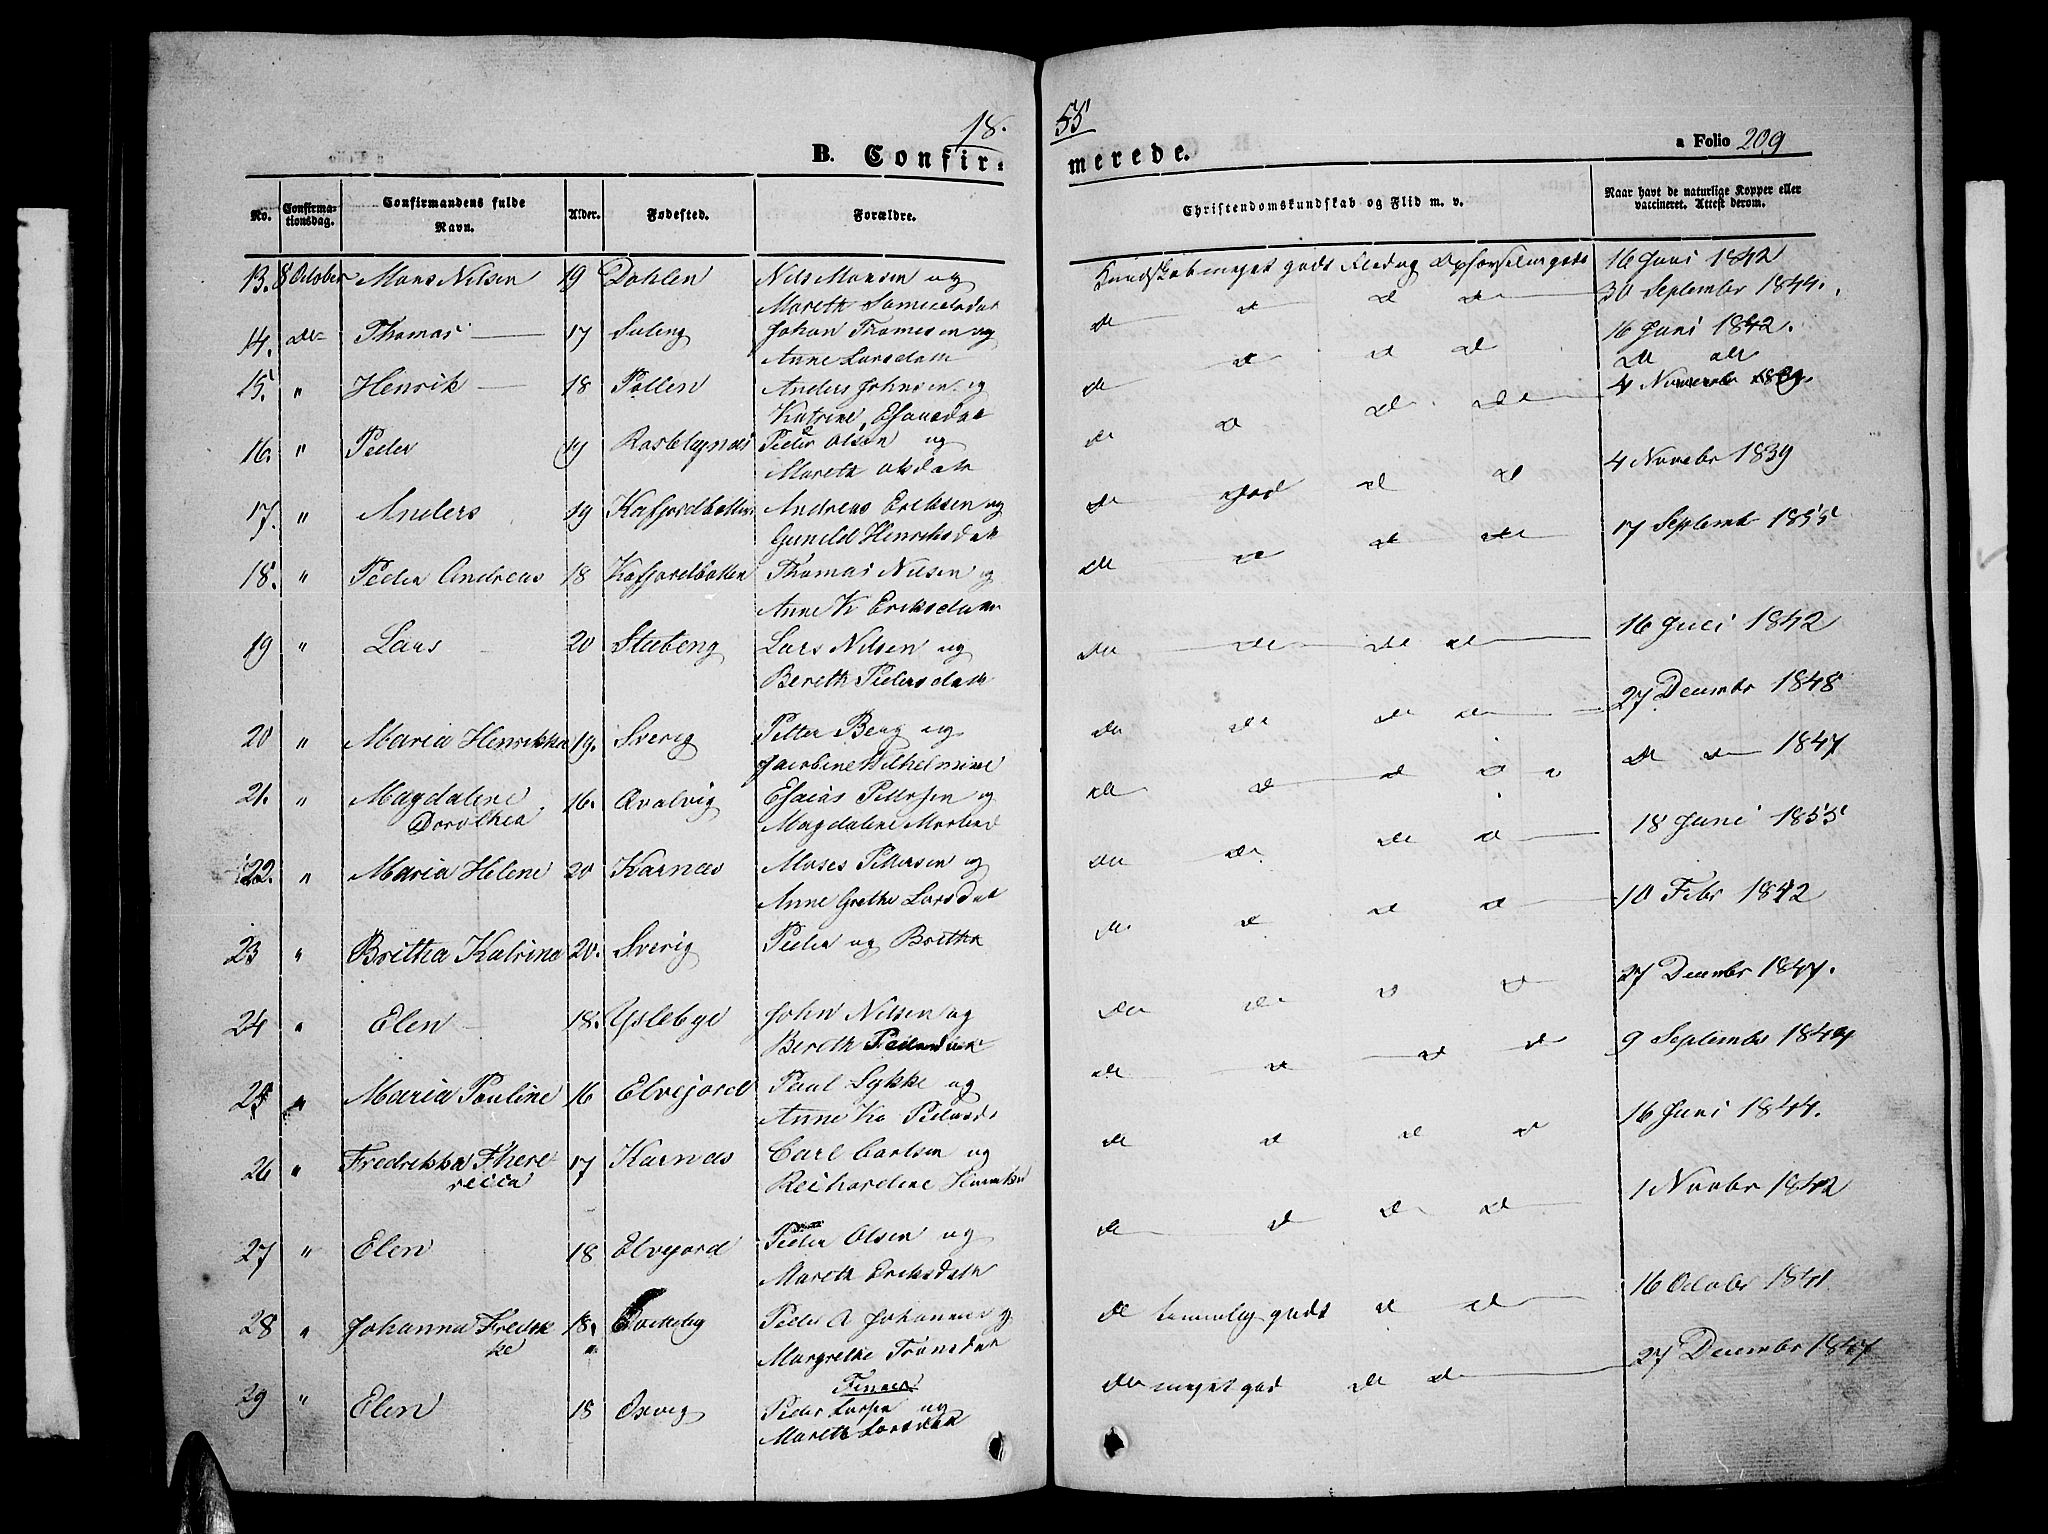 18.
55
B. Confir-
merede.
a Folio 209
No.
Confirma-
tionsdag.
Confirmandens fulde
Navn.
Alder.
Fødested.
Forældre.
Christendomskundskab og Flid m. v.
Naar havt de naturlige Kopper eller
vaccineret. Attest derom.
13. 8 October Mons Nilsen 19 Dahlen Nils Monsen og
Mareth
Kundskab meget godt Flid og Opførsel meget 16 Juni 1842
14. de Thomas 17 Johan Thomesen og
Anne Larsdatr
de d d d 30 September 1844.
15. " Henrik 18 Pollen Anders Johnsen og
Katrine Esaiasdat
de d d d 16 Juni 1842.
de de
16. " Peder 19 Peder Olsen og
Mareth Olsdatr
de d d de 4 Novembr 1839.
17. " Anders 19 Kafjordbotten Andreas Eriksen og
Gunild Henriksdatr
de God d d 4 Novebr 1839
18. " Peder Andreas 18 Kafjordbotten Thomas Nilsen og
Anne K Eriksdatr
de d d de 17 Septembr 1855
19 " Lars 20 Stubeng Lars Nilsen og
Bereth Pedersdatr
de de de d 16 Juni 1842
20 " Maria Henrikka 19. Sverig Petter Berg og
Jacobine Wilhelmine
de de de de 27 Decembr 1848
21. " Magdalene
Dorothea 16. Qvalvig Esaias Pettersen og
Magdalene
de d d d de de 1847
22. " Maria Helene 20 Karnæs Moses Pettersen og
Anne Grethe Larsdat
de de de d 18 Juni 1855
23 " Britha Katrina 20. Sverig Peder og Britha
de d d d 10 Febr 1842
24 " Elen 18. Yslebye John Nilsen og
Bereth Pedersdatr
de de d d 27 Decembr 1847.
25 " Maria Pouline 16 Elvejord Paul Lykke og
Anne Ka Pedersd
de d d d 9 Septembr 1849
26 " Fredrikka There-
recia 17 Karnæs Carl Carlsen og
Richardine
de d d d 16 Juni 1844.
27 " Elen 18 Elvejord Peder Olsen og
Mareth Eriksdatr
de d d d 1 Novbr 1842
28 " Johanna Fredrik-
ke 18. Peder A Johannes og
Margrethe
de temmelig godt d d 16 Octobr 1841
29 " Elen 18 Oxvig Peder Larsen og
Mareth Larsdatr
de meget god de de 27 Decembr 1847